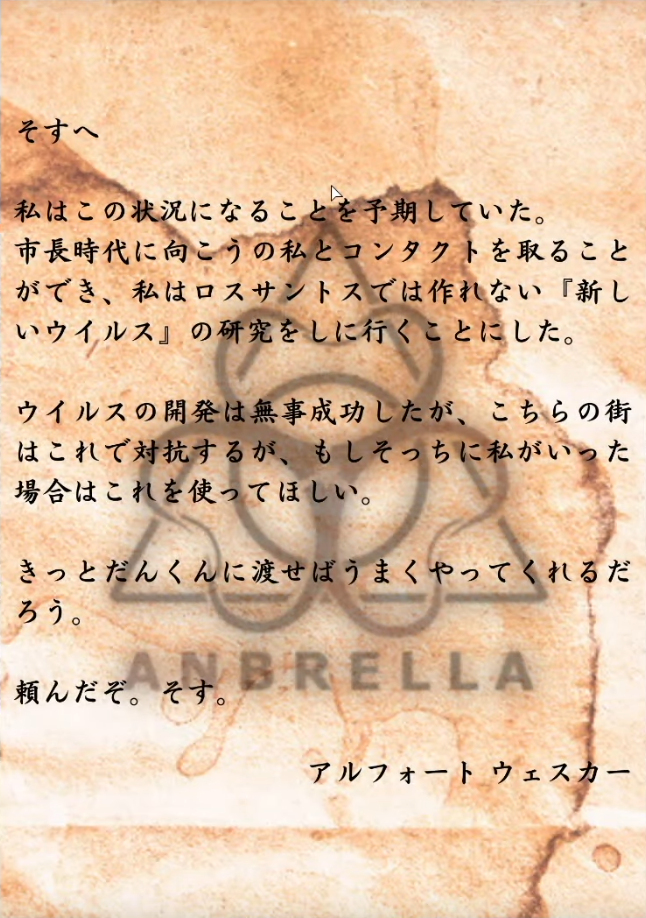 そすへ
私はこの状況になることを予期していた。
市長時代に向こうの私とコンタクトを取ること
ができ、私はロスサントスでは作れない『新し
いウイルス』の研究をしに行くことにした。
ウイルスの開発は無事成功したが、こちらの街
はこれで対抗するが、もしそっちに私がいった
場合はこれを使ってほしい。
きっとだんくんに渡せばうまくやってくれるだ
ろう。
ANBRELLA
頼んだぞ。そす。
アルフォート ウェスカー